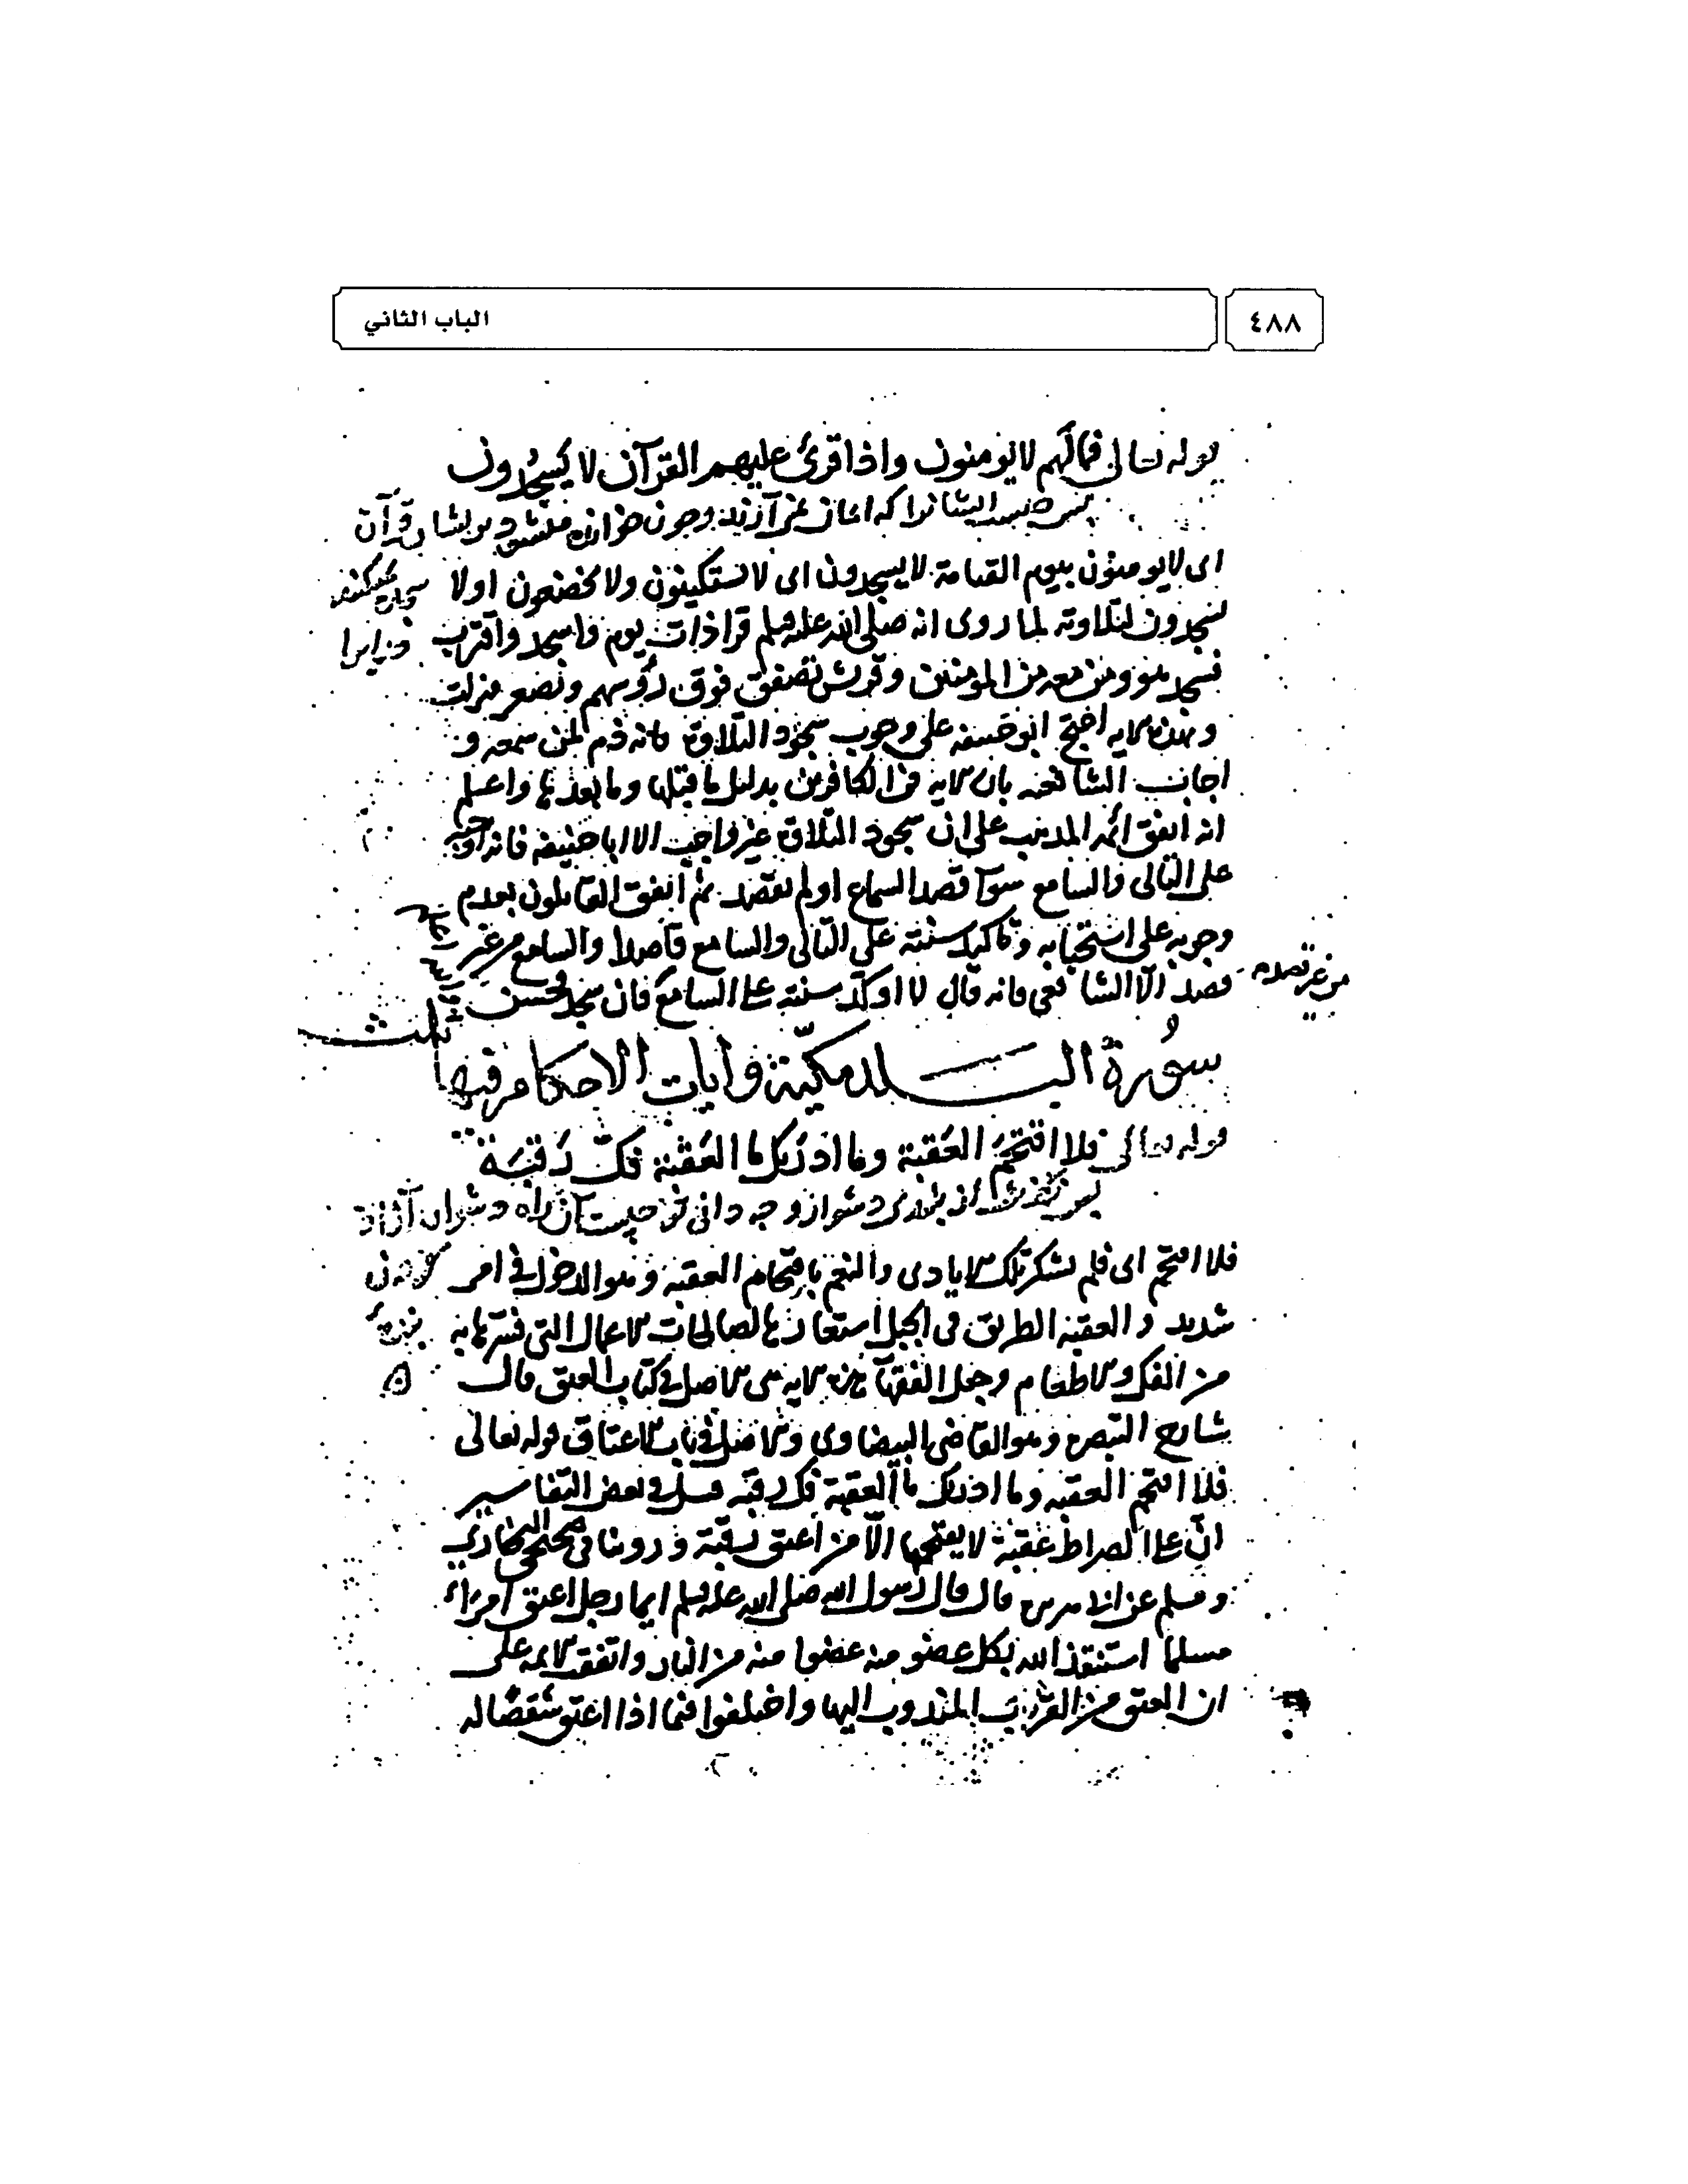 ٤٨٨
الباب الثاني
قوله تعالى فمالهم لا يومنون واذا قرئ عليهم القرآن لا يسجدون
ايشانرا كه ايمان نمى آرند وچون خوانده ميشود بر ايشان قرآن
سجده نميكنند
اى لا يومنون بيوم القيامة لا يسجدون اى لا يستكينون ولا يخضعون اولا
يسجدون لتلاوته لما روى انه صلى الله عليه وسلم قرا ذات يوم واسجد واقترب
فسجد هو ومن معه من المومنين وقريش تصفق فوق رؤسهم وتصفر فنزلت
وبهذه الايه احتج ابو حنيفه على وجوب سجود التلاوة فانه ذم لمن سمعه و
اجاب الشافعيه بان الايه في الكافرين بدليل ما قبلها وما بعدها واعلم
انه اتفق ائمه المذاهب على ان سجود التلاوة غير واجب الا ابا حنيفه فانه اوجبه
على التالى والسامع سوآ قصد السماع اولم يقصد ثم اتفق القايلون بعدم
وجوبه على استحبابه وتاكيد سنته على التالى والسامع قاصدا والسامع من غير
قصد الا الشافعى فانه قال لا اوكد سنته على السامع فان سجد فحسن
من غير قصده
ثلث
سورة البلد مكية وايات الاحكام فيها
قوله تعالى فلا اقتحم العقبة وما ادريك ما العقبة فك رقبة
دشوار وچه دانى تو چيست آن راه دشوار آزاد
كردن
بنده
فلا اقتحم اى فلم يشكر تلك الايادى والنعم باقتحام العقبة وهو الدخول فى امر
شديد والعقبه الطريق فى الجبل استعارها لصالحات الاعمال التى فسرها به
من الفك والاطعام وجعل الفقهآ هذه الايه هى الاصل فى كتاب العتق قال
شارح التبصره وهو القاضى البيضاوى والاصل فى باب الاعتاق قوله تعالى
فلا اقتحم العقبه وما ادريك ما العقبة فك رقبه قيل فى بعض التفاسير
ان على الصراط عقبة لا يقتحمها الا من اعتق رقبة وروينا فى صحيحى البخارى
ومسلم عن ابى هريره قال قال رسول الله صلى الله عليه وسلم ايما رجل اعتق امراء
مسلما استنقذ الله بكل عضو منه عضوا منه من النار واتفقت الايمه على
ان العتق من القربات المندوب اليها واختلفوا فيما اذا اعتق شقصا له